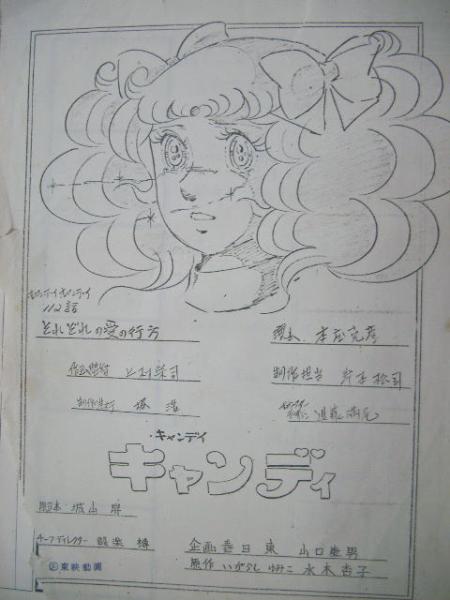 キャンディキャンディ
112話
それぞれの愛の行方
作画監督
制作担当
制作進行
・キャンディ
キャンディ
脚本 城山 昇
チーフディレクター 設楽 博
企画 春日 東 山口康男
原作 いがらし ゆみこ 水木杏子
東映動画